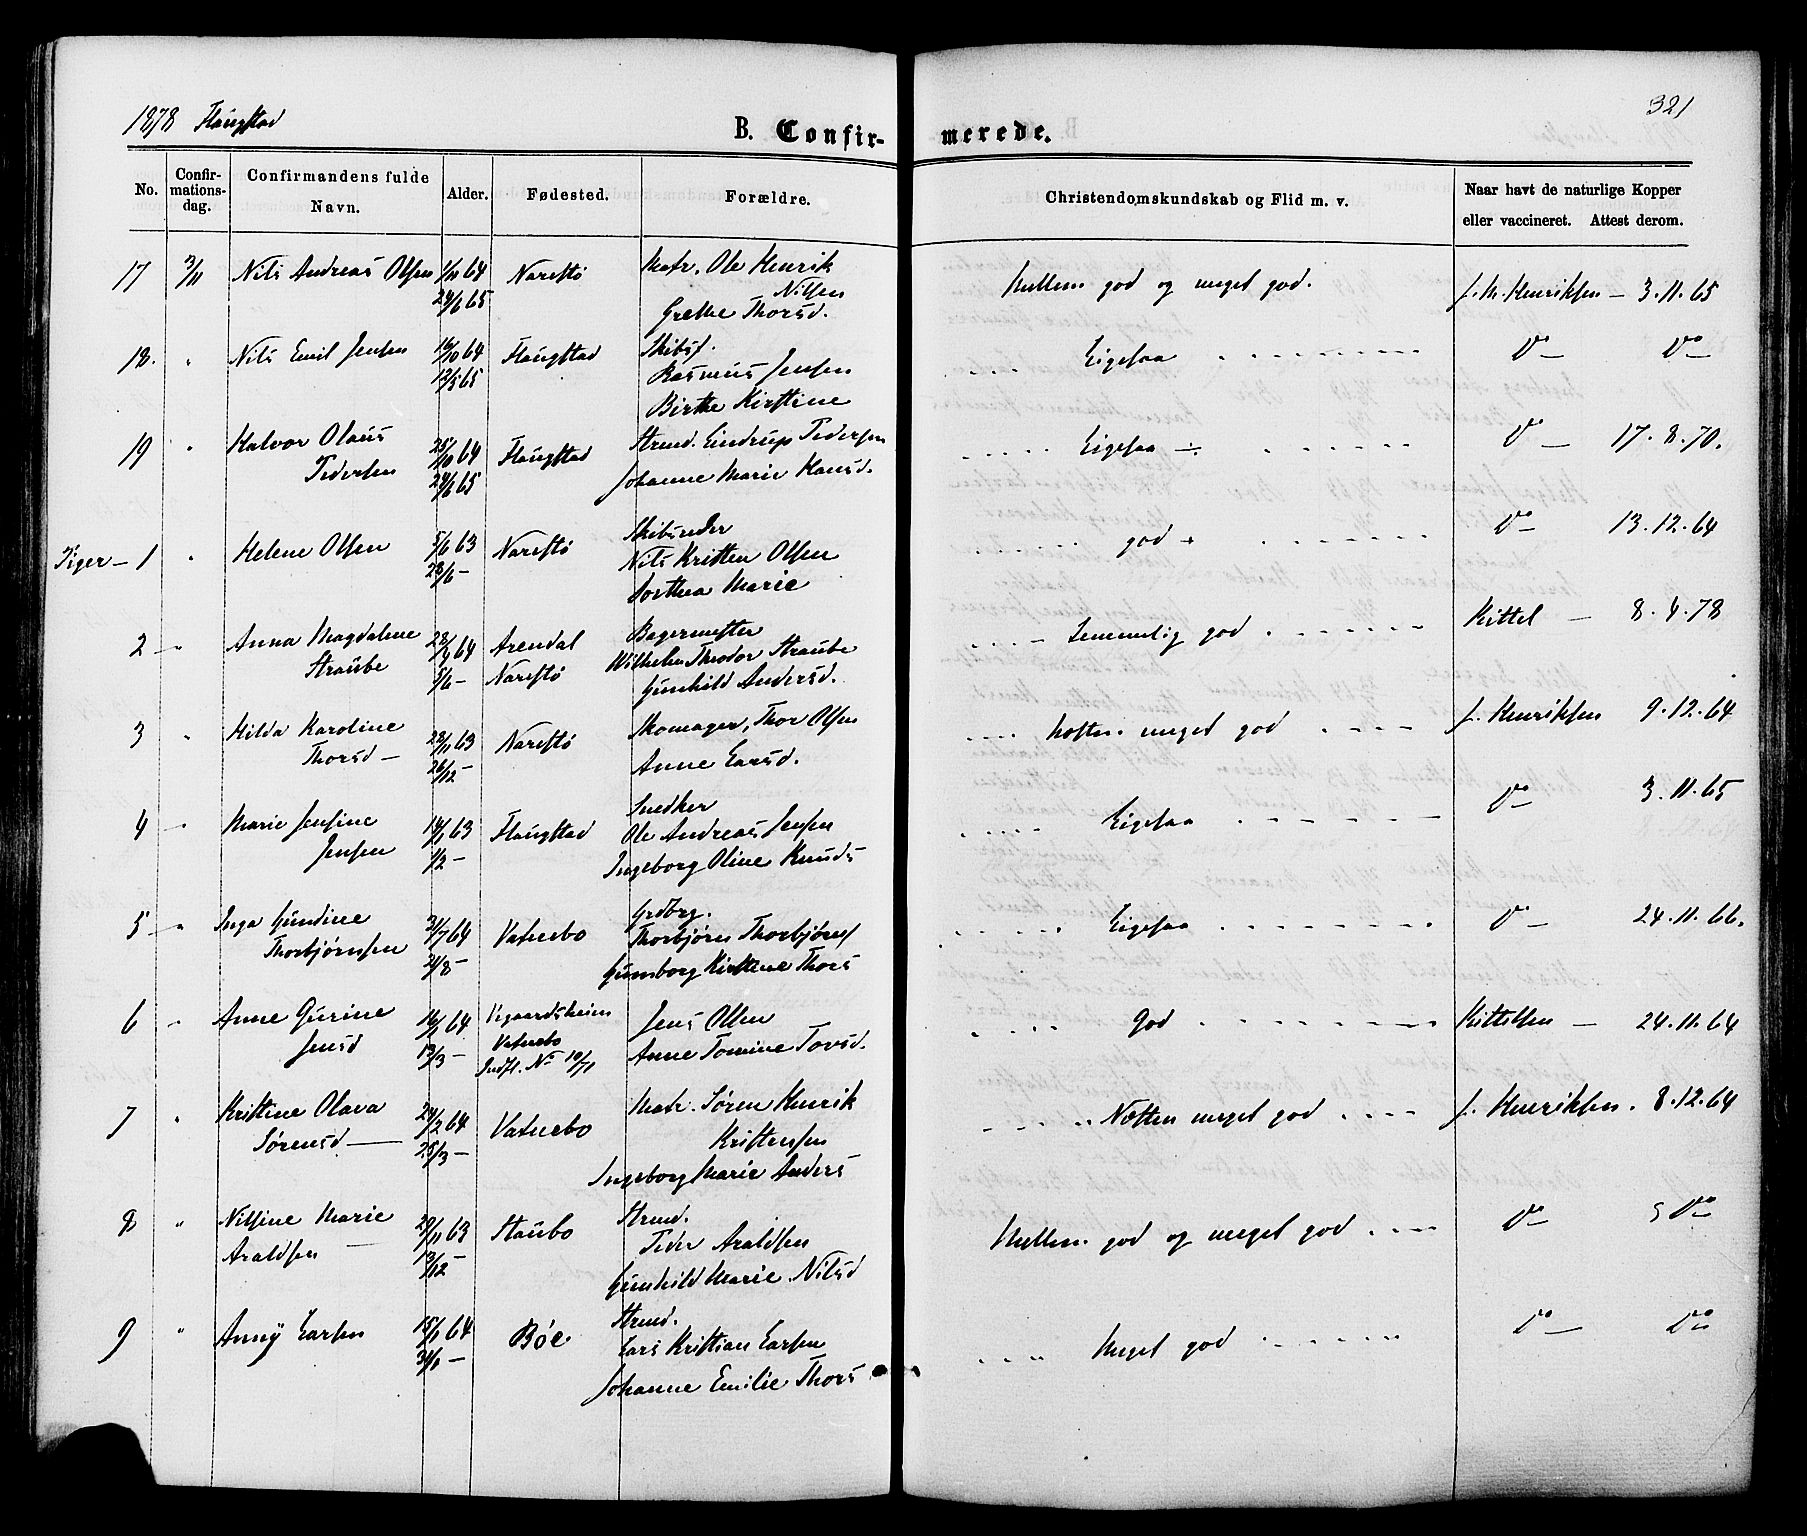 1878 Flangstad
321
B. Confirmerede.
No.
Confirmationsdag.
Confirmandens fulde Navn.
Alder.
Fødested.
Forældre.
Christendomskundskab og Flid m. v.
Naar havt de naturlige Kopper eller vaccineret. Attest derom.
17 3/11 Nils Andreas Olsen 1/11 64 Narestø Matr. Ole Henrik Mellem god og meget god. J. M. Henriksen – 3.11.65
24/6 65 Nilsen
Grethe Thorsd.
18. " Nils Emil Jensen 16/10 64 Flangstad Skibsf. Ligesaa Do – Do
12/5 65 Rasmus Jensen
Birthe Kirstine
19 " Halvor Olaus 25/10 64 Flangstad Strmd. Eindrup Pedersen Ligesaa ÷ Do – 17.8.70.
Pedersen 24/6 65 Johanne Marie Hansd.
Piger – 1 " Helene Olsen 5/6 63 Narestø Skibsreder god + Do – 13.12.64
28/6 – Nils Kristen Olsen
Dorthea Marie
2 – " Anna Magdalene 28/4 64 Arendal Bagermester Temmelig god Kittel – 8.4.78
Straube 5/6 – Narestø Wilhelm Theodor Straube
Gunhild Andersd.
3 " Hilda Karoline 28/11 63 Narestø Skomager, Thor Olsen Næsten meget god J. Henriksen 9.12.64
Thorsd – 26/12 – Anne Larsd.
4 – " Marie Jensine 14/1 63 Flangstad Snedker Ligesaa Do – 3.11.65
Jensen 1/2 – Ole Andreas Jensen
Ingeborg Oline Knuds
5 – " Inga Gundine 3/7 64 Vatnebo Grdbrg. Ligesaa Do – 24.11.66.
Thorbjørnsen 21/8 – Thorbjørn Thorbjørns
Gunborg Kirstine Thors
6 – " Anne Gurine 16/1 64 Vegaardsheien Jens Olsen God Kittelsen – 24.11.64
Jensd 13/3 – Vatnebo Anne Tomine Tovsd.
Indfl. No 10/71
7 " Kristine Olava 24/2 64 Vatnebo Matr. Søren Henrik Næsten meget god J. Henriksen. 8.12.64
Sørensd – 25/3 – Kristensen
Ingeborg Marie Anders
8 " Nilsine Marie 29/11 63 Staubo Strmd. Mellem god og meget god Do – Do
Araldsen 13/12 – Peder Araldsen
Gunhild Marie Nilsd
9 " Anny Larsen 15/1 64 Bøe Strmd. Meget god Do – Do
31/1 – Lars Kristian Larsen
Johanne Emilie Thors